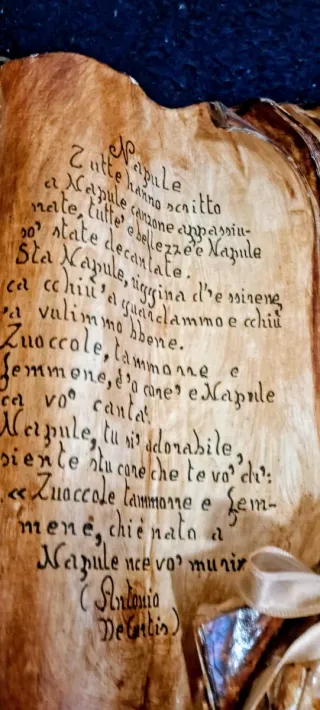 Napule
Tutte hanno scritto
a Napule canzone appassiu-
nate, tutte' e bellezze 'e Napule
so' state decantate.
Sta Napule, riggina d''e sirene,
ca cchiù 'a guardammo e cchiù
'a vulimmo bbene.
Zuoccole, tammorre e
femmene, è 'o core' e Napule
ca vo' cantà.
Napule, tu si' adorabile,
siente stu core che te vo' di':
«Zuoccole tammorre e fem-
mene, chi è nato a
Napule nce vo' murir
(Antonio
De Curtis)